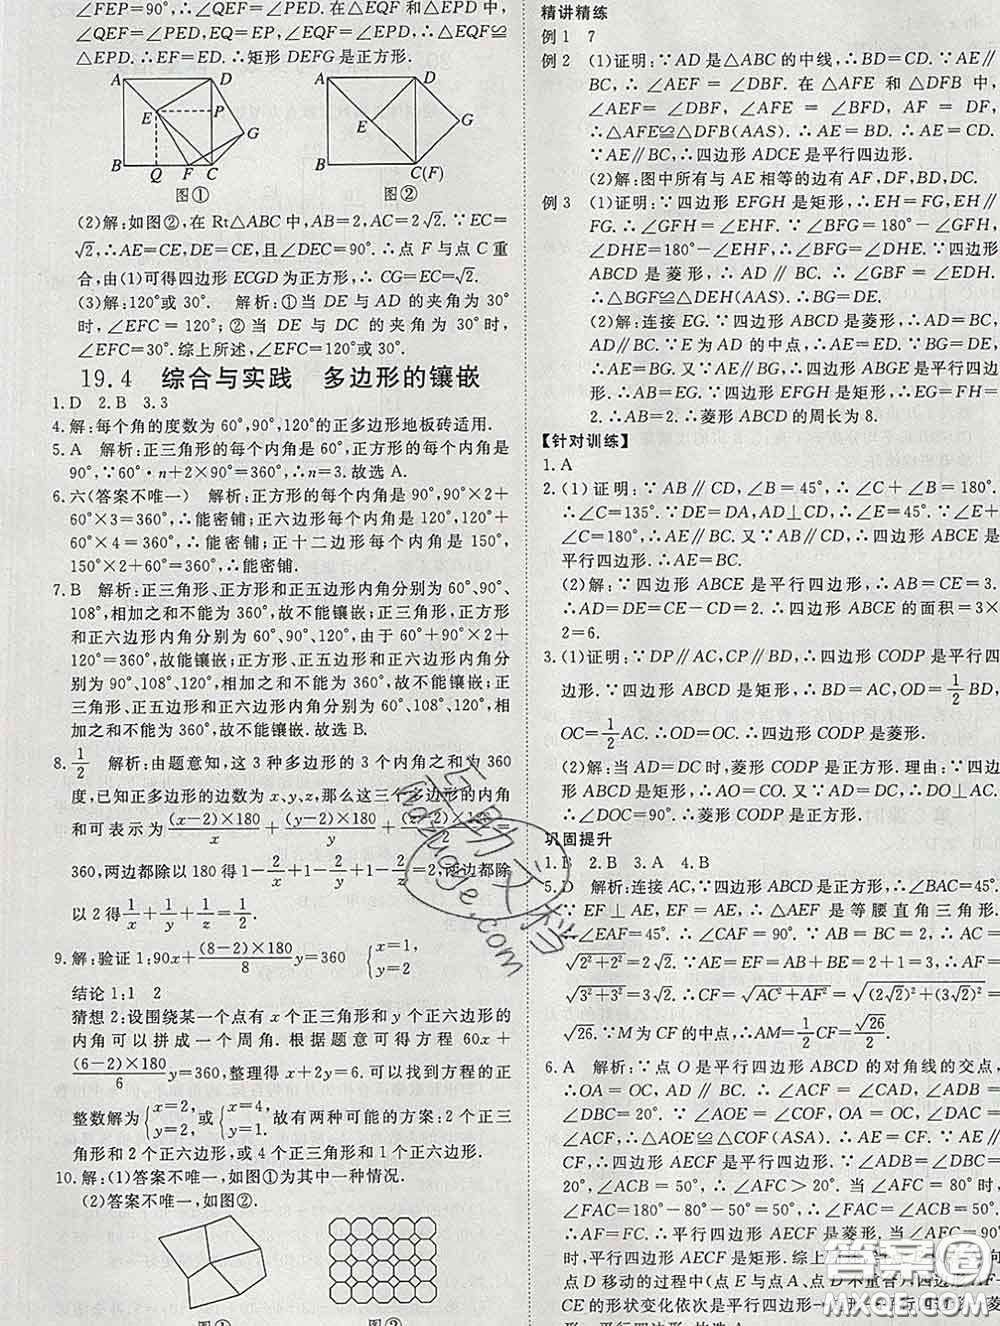 ∠FEP=90°, ∴∠QEF=∠PED. 在△EQF 和△EPD
中
∠EPD. ∴EF=ED. ∴矩形 DEFG 是正方形.
A
D
E
P
G
B
Q
F
C
图①
A
D
E
G
B
C(F)
图②
(2)解:如图②,在 Rt△ABC 中,AB=2,AC=2√2. ∵EC=
√2,∴AE=CE,DE=CE,且∠DEC=90°. ∴点 F 与点 C 重
合,由(1)可得四边形 ECGD 为正方形,∴ CG=EC=√2.
(3)解:120°或 30°. 解析:①当 DE 与 AD 的夹角为 30°
时,∠EFC=120°;②当 DE 与 DC 的夹角为 30°时,
∠EFC=30°. 综上所述,∠EFC=120°或 30°.
19.4 综合与实践 多边形的镶嵌
1.D 2.B 3.3
4.解:每个角的度数为 60°,90°,120°的正多边形地板砖适用.
5.A 解析:正三角形的每个内角是 60°,正方形的每个内角是
90°,∵60°·n+2×90°=360°,∴n=3. 故选 A.
6.六(答案不唯一) 解析:正方形的每个内角是 90°,90°×2+
60°×3=360°,∴能密铺;正六边形每个内角是 120°,120°+
60°×4=360°,∴能密铺;正十二边形每个内角是 150°,
150°×2+60°=360°,∴能密铺.
7.B 解析:正三角形、正方形和正五边形内角分别为 60°,90°,
108°,相加之和不能为 360°,故不能镶嵌;正三角形、正方形
和正六边形内角分别为 60°、90°、120°,由于 60°+90°×
2+120°=360°,故能镶嵌;正方形、正五边形和正六边形内角分
别为 90°、108°、120°,相加之和不能为 360°,故不能镶嵌;正
三角形、正五边形和正六边形内角分别为 60°、108°、120°,相
加之和不能为 360°,故不能镶嵌. 故选 B.
8. 1/2 解析:由题意知,这 3 种多边形的 3 个内角之和为 360
度,已知正多边形的边数为 x、y、z,那么这三个多边形的内角
和可表示为 (x−2)×180/x + (y−2)×180/y + (z−2)×180/z =
360,两边都除以 180 得 1−2/x+1−2/y+1−2/z=2,两边都除
以 2 得 1/x+1/y+1/z=1/2.
9.解:验证 1:90x+(8−2)×180/8 y=360 {x=1, y=2
结论 1:1 2
猜想 2:设围绕某一个点有 x 个正三角形和 y 个正六边形的
内角可以拼成一个周角. 根据题意可得方程 60x+
(6−2)×180/6 y=360,整理得 x+2y=6. 可以找到方程的正
整数解为{x=2, y=2,或{x=4, y=1,故有两种可能的方案:2 个正三
角形和 2 个正六边形,或 4 个正三角形和 1 个正六边形.
10.解:(1)答案不唯一,如图①为其中一种情况.
(2)答案不唯一,如图②.
图①
图②
精讲精练
例 1 7
例 2 (1)证明:∵AD 是△ABC 的中线,∴BD=CD. ∵AE∥
BC,∴ ∠AEF = ∠DBF. 在 △AFE 和 △DFB 中,
∠AEF = ∠DBF, ∠AFE = ∠BFD, AF = DF,
∴△AFE≌△DFB(AAS). ∴AE=BD. ∴AE=CD.
∵AE∥BC,∴四边形 ADCE 是平行四边形.
(2)解:图中所有与 AE 相等的边有 AF,DF,BD,DC.
例 3 (1)证明:∵四边形 EFGH 是矩形,∴EH=FG,EH∥
FG. ∴∠GFH=∠EHF. ∵∠BFG=180°−∠GFH,
∠DHE=180°−∠EHF,∴∠BFG=∠DHE. ∵四边形
ABCD 是菱形,∴AD∥BC. ∴∠GBF = ∠EDH.
∴△BGF≌△DEH(AAS). ∴BG=DE.
(2)解:连接 EG. ∵四边形 ABCD 是菱形,∴AD=BC,AD∥
BC. ∵E 为 AD 的中点,∴AE=ED. ∵BG=DE,∴AE=
BG. 又AE∥BG,∴四边形 ABGE 是平行四边形. ∴AB=
EG. ∵四边形 EFGH 是矩形,∴EG=FH=
2. ∴AB=2. ∴菱形 ABCD 的周长为 8.
【针对训练】
1.A
2.(1)证明:∵AB∥CD,∠B=45°,∴∠C+∠B=180°.
∴∠C=135°. ∵DE=DA,AD⊥CD,∴∠E=45°. ∵∠E+
∠C=180°,∴AE∥BC. 又∵AB∥CD,∴四边形 ABCE 是
平行四边形. ∴AE=BC.
(2)解:∵四边形 ABCE 是平行四边形,∴AB=CE=3.
∴AD=DE=AB−CD=2. ∴四边形 ABCE 的面积=3×
2=6.
3.(1)证明:∵DP∥AC,CP∥BD,∴四边形 CODP 是平行四
边形. ∵四边形 ABCD 是矩形,∴BD=AC,OD=1/2BD,
OC=1/2AC. ∴OD=OC. ∴四边形 CODP 是菱形.
(2)解:当 AD=DC 时,菱形 CODP 是正方形. 理由:∵四边
形 ABCD 是矩形,∴AO=CO. 又∵AD=DC,∴DO⊥AC.
∴∠DOC=90°. ∴菱形 CODP 是正方形.
巩固提升
1.B 2.B 3.A 4.B
5.D 解析:连接 AC,∵四边形 ABCD 是正方形,∴∠BAC=45°.
∵ EF⊥AE, EF=AE, ∴△AEF 是等腰直角三角形.
∴∠EAF=45°. ∴∠CAF=90°. ∵AB=BC=2,∴AC=
√2²+2²=2√2. ∵AE=EF=AB+BE=2+1=3,∴AF=
√3²+3²=3√2. ∴CF=√AC²+AF²=√(2√2)²+(3√2)²=
√26. ∵M 为 CF 的中点,∴AM=1/2CF=√26/2.
6.A 解析:∵点 O 是平行四边形 ABCD 的对角线的交点,
∴OA=OC, AD∥BC. ∴∠ACF=∠CAD, ∠ADB=
∠DBC=20°. ∵∠AOE=∠COF, OA=OC, ∠DAC=
∠ACF,∴△AOE≌△COF(ASA). ∴AE=CF. ∵AE∥
CF,∴四边形 AECF 是平行四边形. ∵∠ADB=∠DBC=
20°,∠ACB=50°,∴∠AFC>20°. 当∠AFC=80°时,
∠FAC=180°−80°−50°=50°. ∴∠FAC=∠ACB=50°.
∴AF=FC. ∴平行四边形 AECF 是菱形. 当∠AFC=90°
时,平行四边形 AECF 是矩形. 综上
点 D 移动的过程中(点 E 与点 A、点 D 不重合),四边形 AF-
CE 的形状变化依次是平行四边形→菱形→平行四边形→
答案圈
MXQE.COM